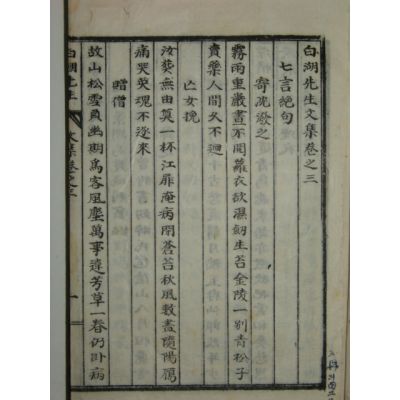 白湖先生文集卷之三
七言絶句
寄沈潑之
霧雨重巖晝不開蘿衣欲濕劒生苔金陵一別青松子
賣藥人間久不迴
亡女挽
汝葬無由奠一杯江扉庵病閉蒼苔秋風數盡隨陽鴈
痛哭英魂不逐來
贈僧
故山松雪負幽期爲客風塵萬事違芳草一春仍卧病
白湖先生 文集卷之三 一